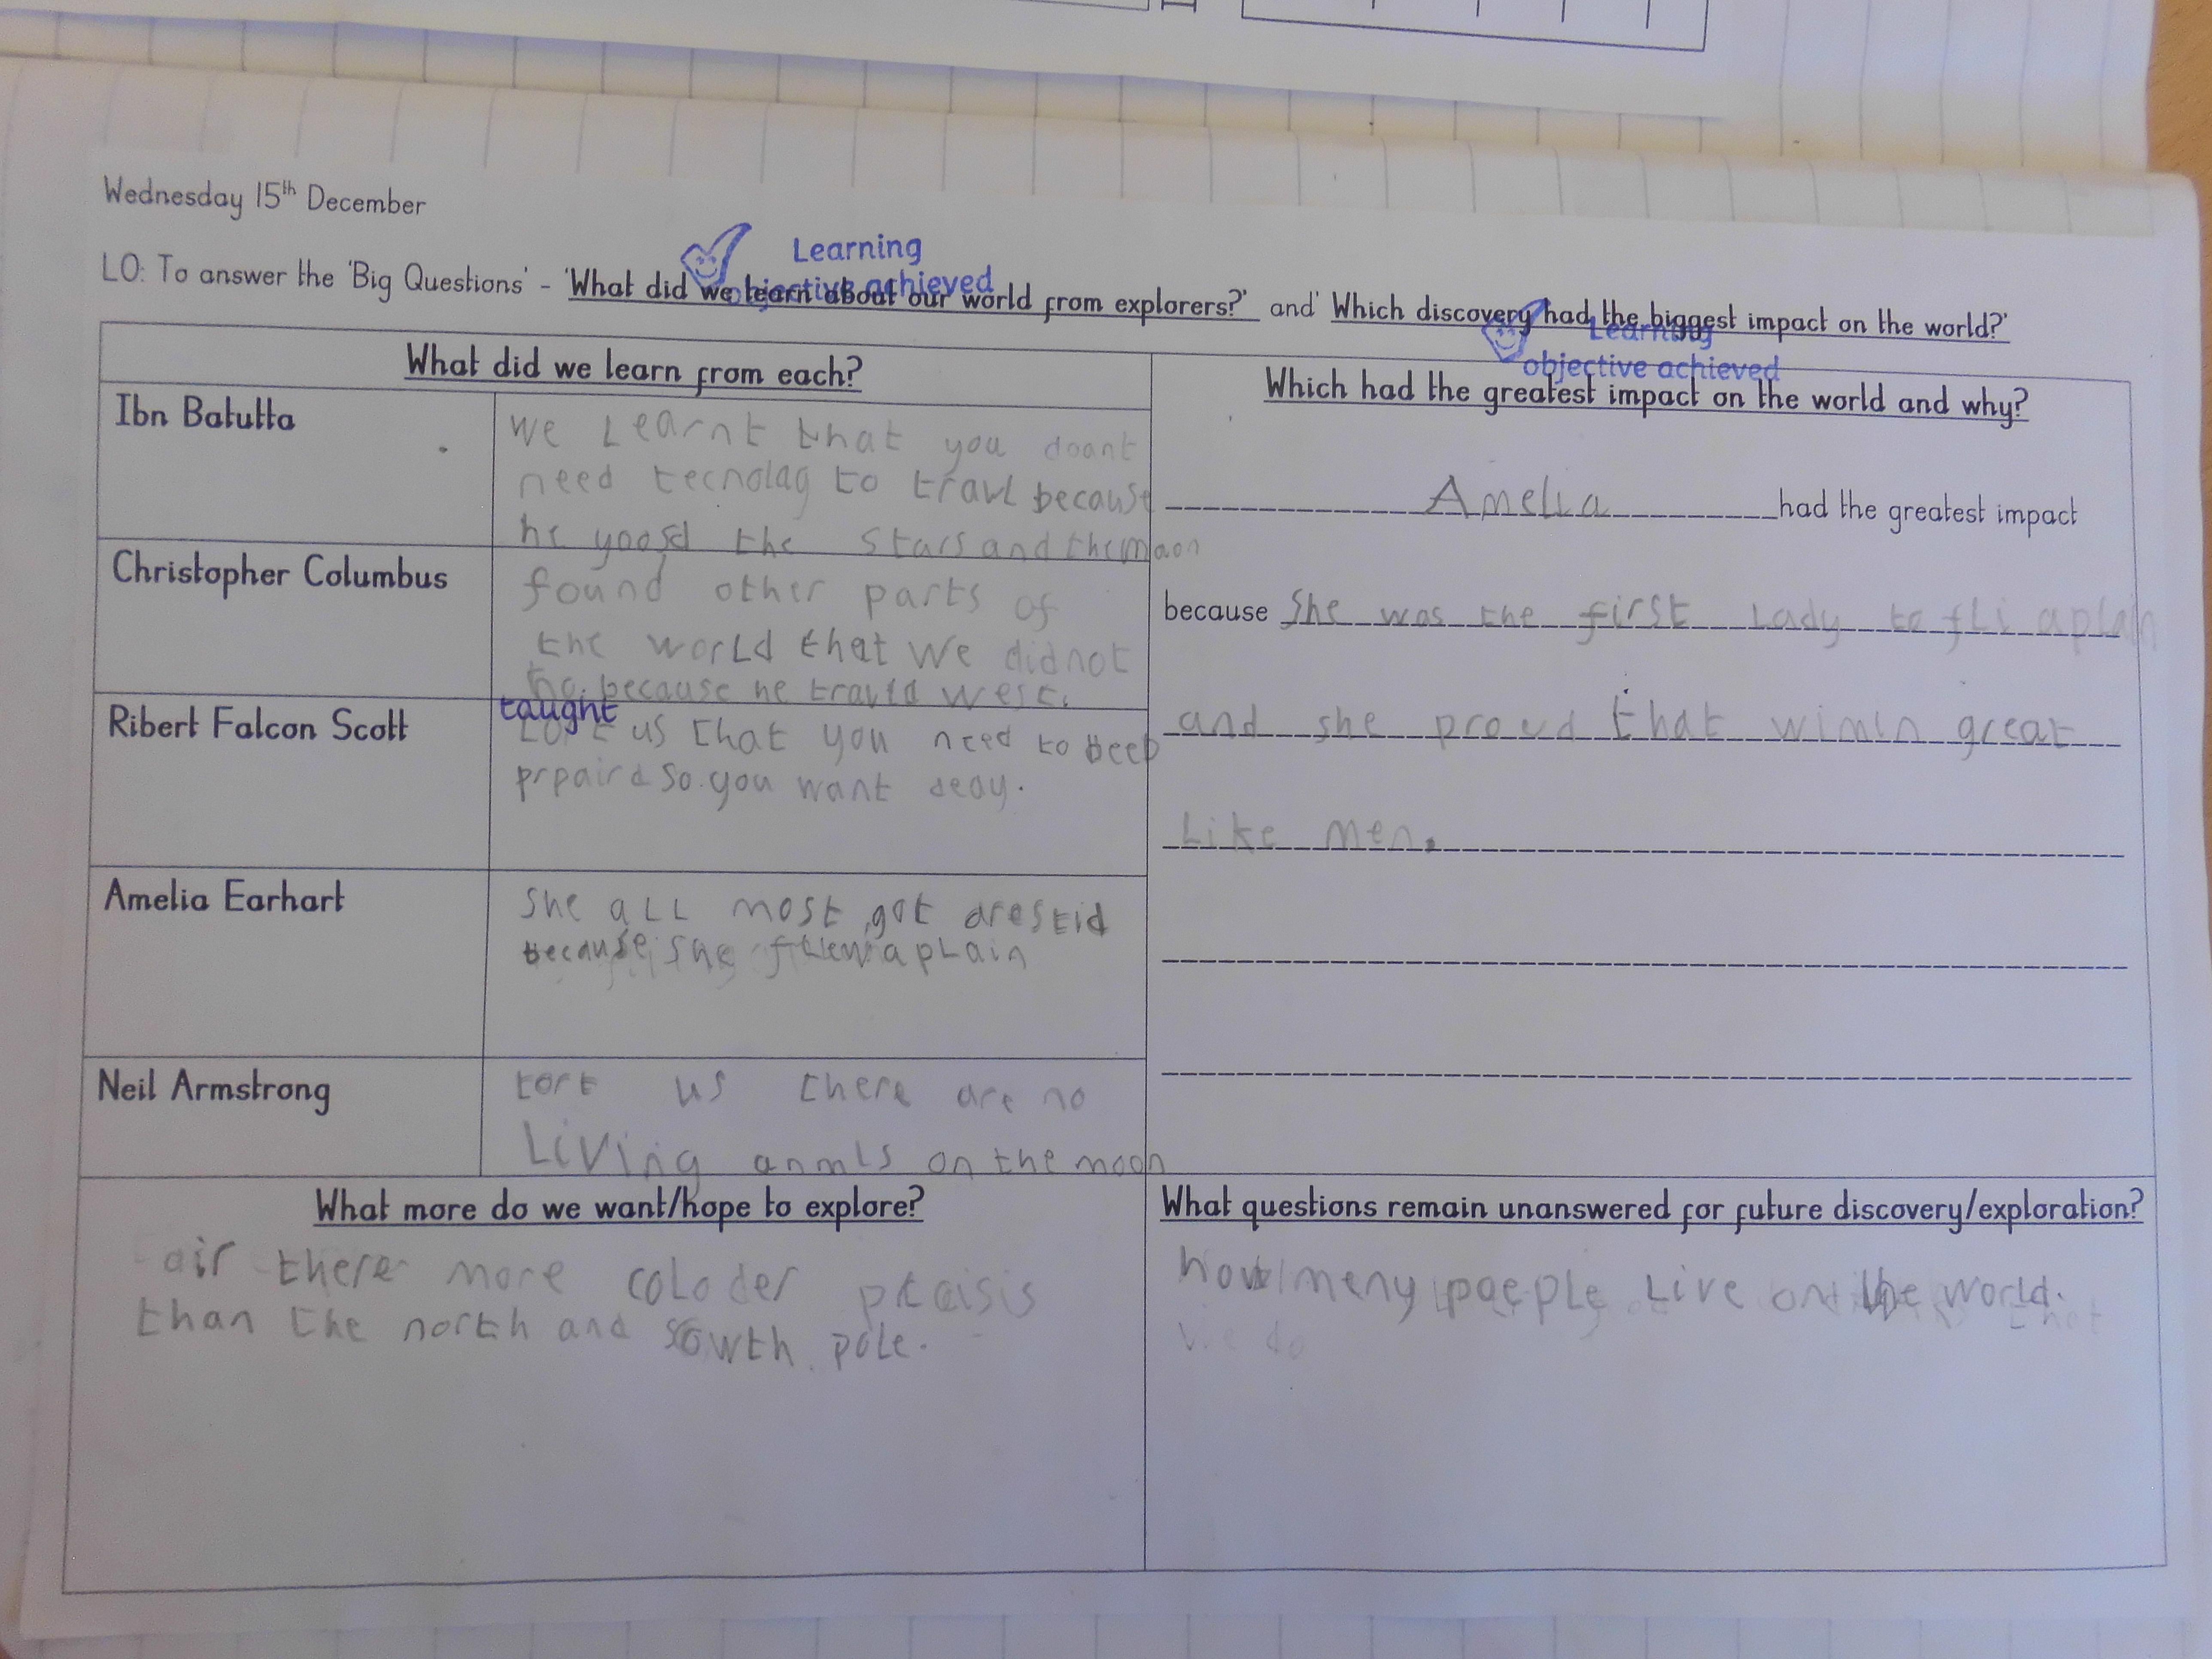 Wednesday 15th December
Learning
objective achieved
LO: To answer the 'Big Questions' - 'What did we learn about our world from explorers?' and' Which discovery had the biggest impact on the world?'
Learning
objective achieved
What did we learn from each?
Ibn Batutta
We Learnt that you doant
need tecnolag to travl because
he yoosd the stars and the moon
Christopher Columbus
found other parts of
the world that we did not
no. because he travld west.
Ribert Falcon Scott
taught
us that you need to beep
prpaird so.you want deay.
Amelia Earhart
She all most got arestid
because she flew a plain
Neil Armstrong
tort us there are no
Living anmls on the moon
Which had the greatest impact on the world and why?
Amelia had the greatest impact
because She was the first Lady to fli a plain
and she proud that wimin great
Like men.
What more do we want/hope to explore?
air there more coloder plaisis
than the north and sowth pole.
What questions remain unanswered for future discovery/exploration?
how meny poeple Live on the world.